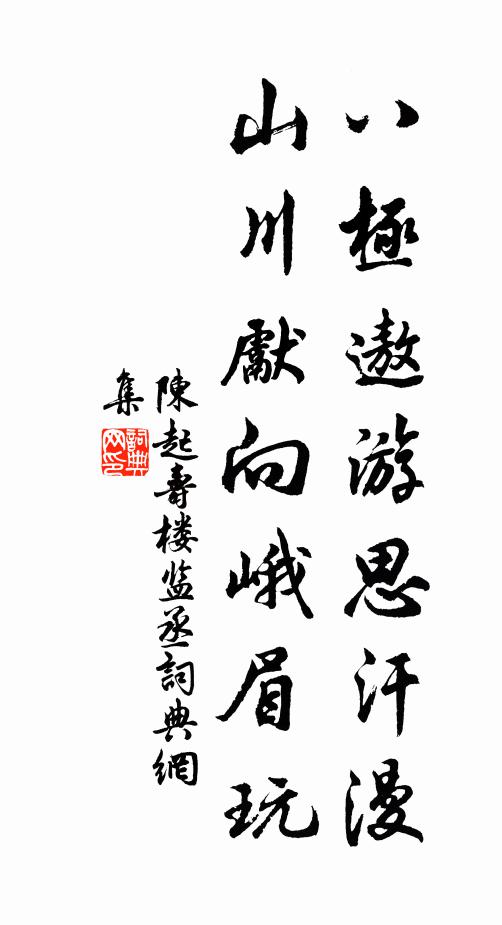 八極遨游思汗漫
山川獻向峨眉玩
陳起壽楼监丞詞典網
集
詞典网印